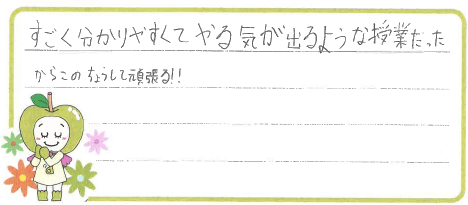 すごく分かりやすくてやる気が出るような授業だった
からこのちょうしで頑張る!!